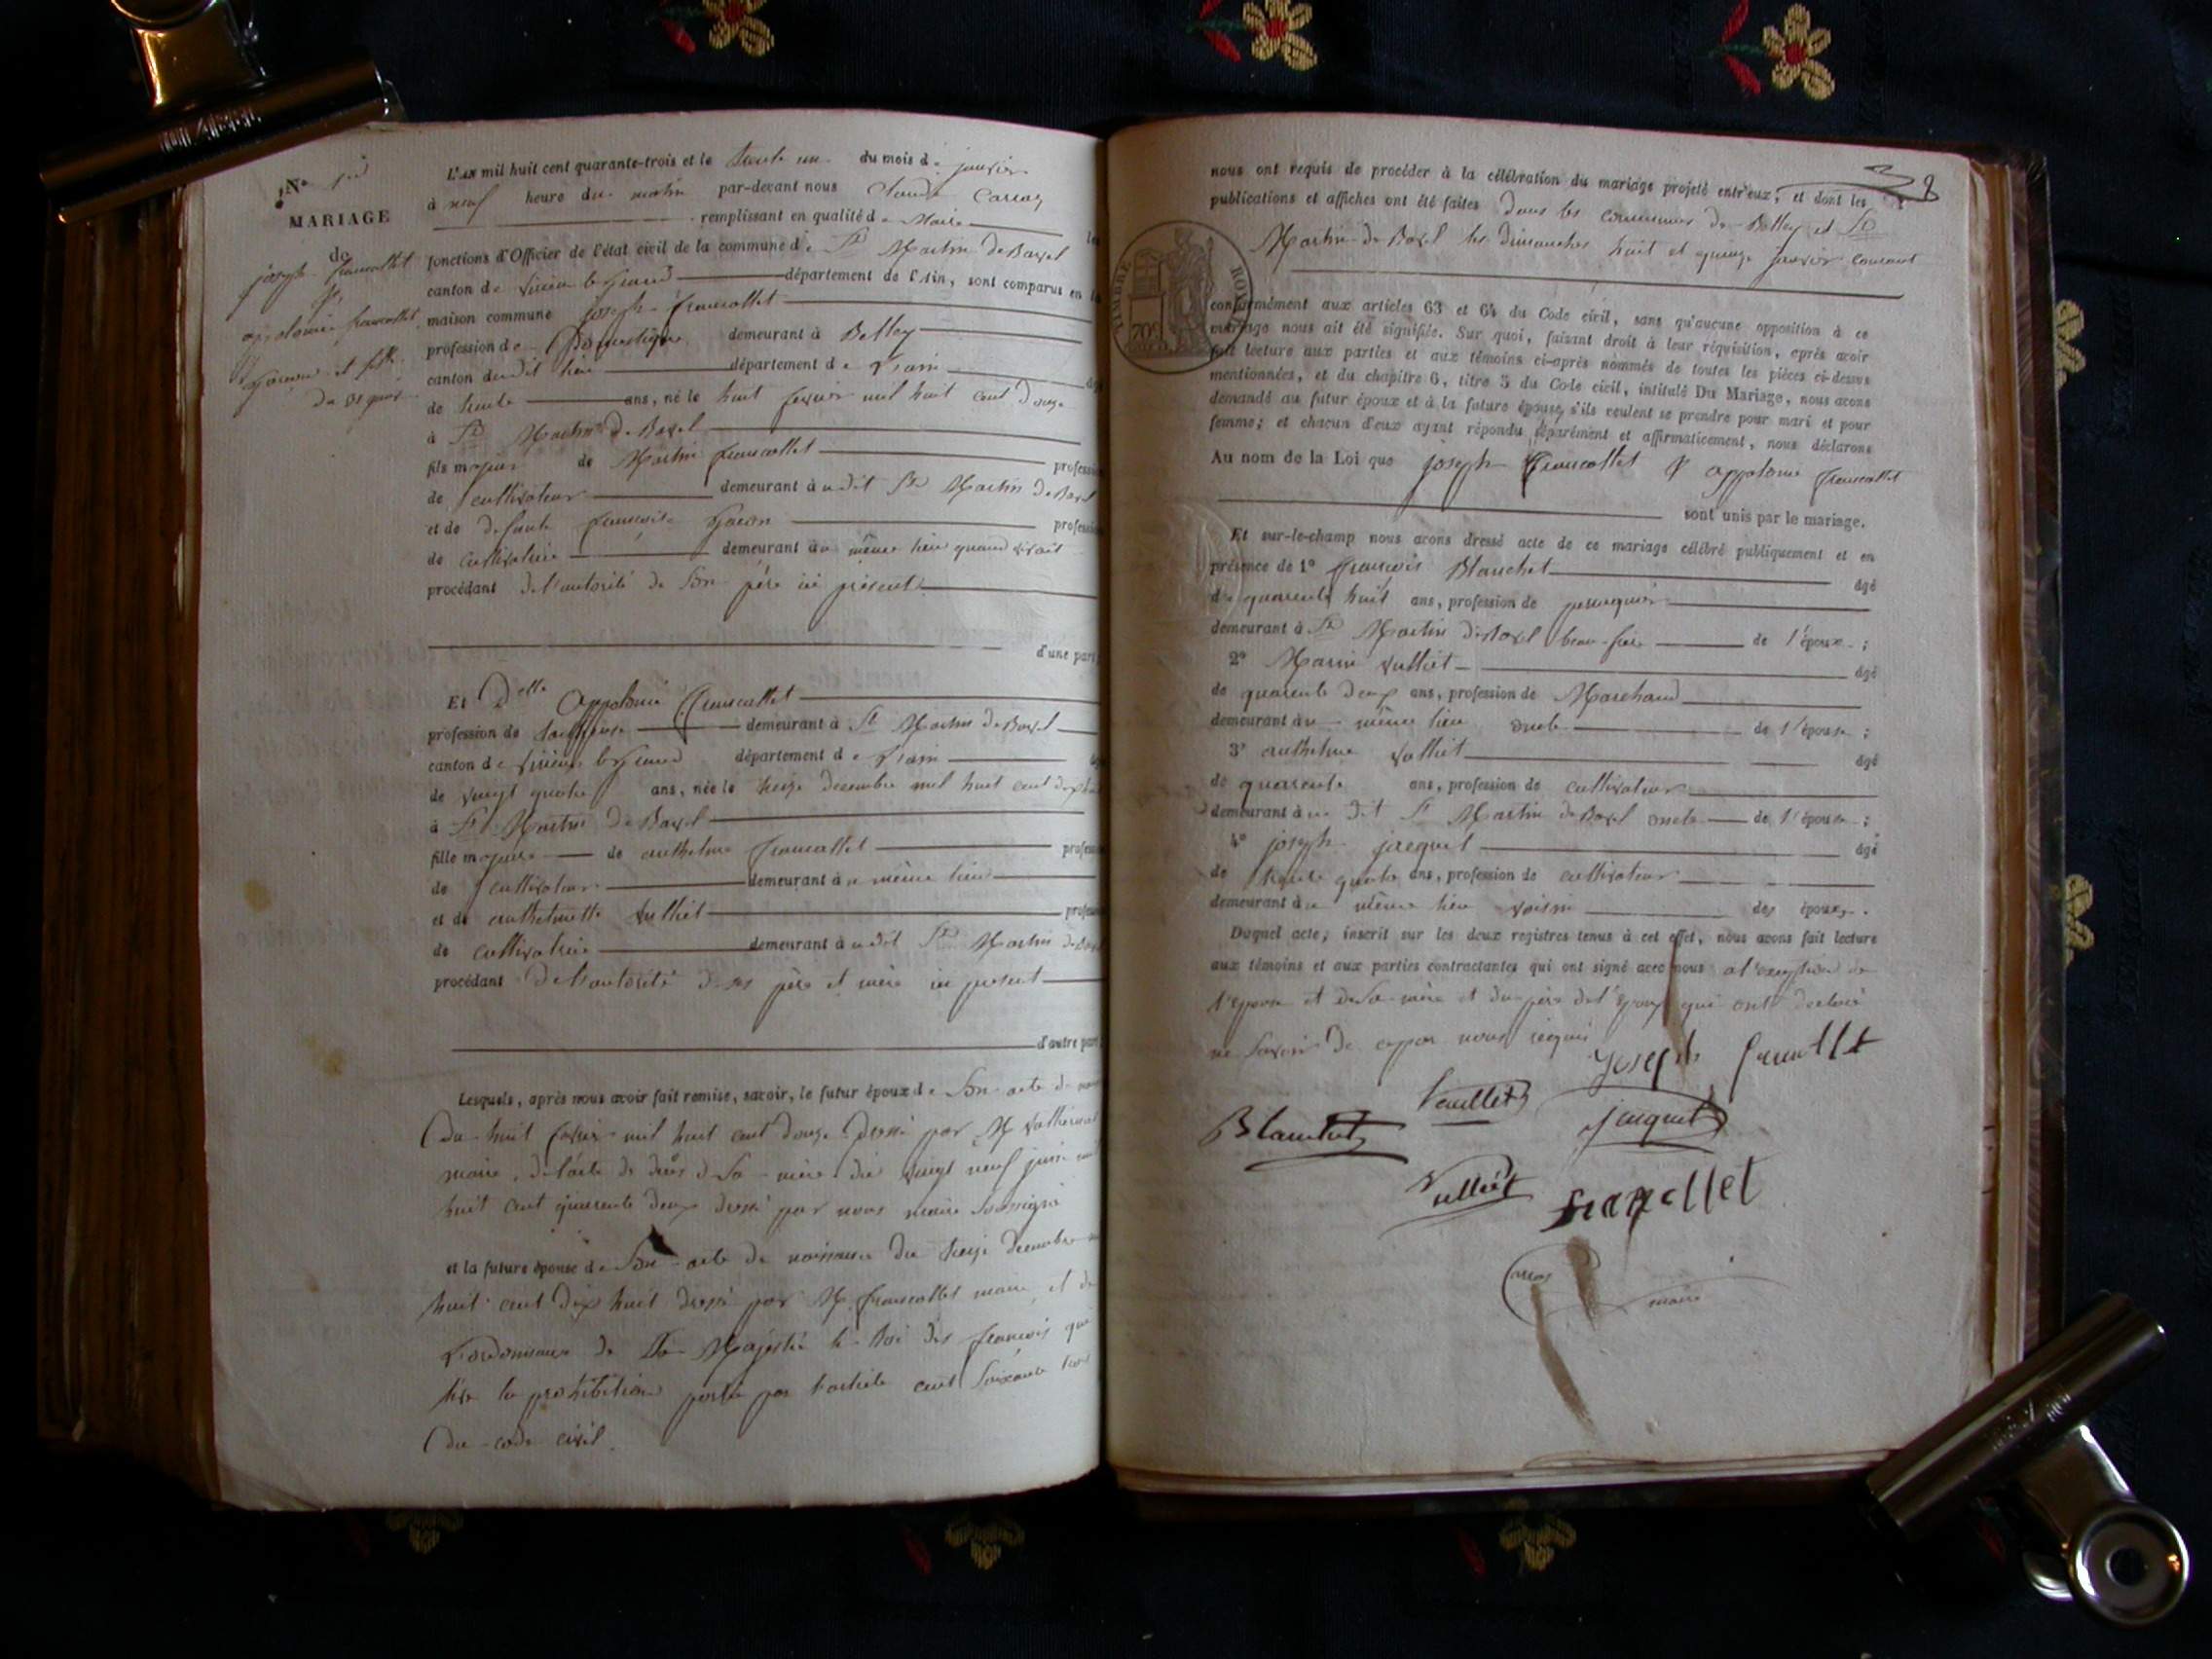 N° 1er
MARIAGE
de
joseph francollet
&
appolonie francollet
garcon et fille
du 31 janvier
L'AN mil huit cent quarante-trois et le trente un du mois de janvier
à neuf heure du matin par-devant nous Claude Carraz
remplissant en qualité de Maire les
fonctions d'Officier de l'état civil de la commune de St Martin de Bavel
canton de Virieu le Grand département de l'Ain, sont comparus en la
maison commune joseph francollet
profession de Domestique demeurant à Belley
canton du dit lieu département de l'ain âgé
de trente ans, né le huit fevrier mil huit cent douze
à St Martin de Bavel
fils majeur de Martin francollet profession
de cultivateur demeurant à u dit St Martin de Bavel
et de defunte françoise profession
de cultivatrice demeurant au même lieu quand vivait
procédant de l'autorité de son père ici présent
d'une part,
Et Delle Appolonie francollet
profession de demeurant à St Martin de Bavel
canton de Virieu le Grand département de l'ain
de vingt quatre ans, née le treize decembre mil huit cent dix huit
à St Martin de Bavel
fille majeure de anthelme francollet profession
de cultivateur demeurant au même lieu
et de anthelmette Vulliet profession
de cultivatrice demeurant à u dit St Martin de Bavel
procédant de l'autorité de ses père et mère ici présent
d'autre part
Lesquels, après nous avoir fait remise, savoir, le futur époux de son acte de
du huit fevrier mil huit cent douze dressé par M
maire, de l'acte de decès de sa mère du vingt neuf juin mil
huit cent quarante deux dressé par nous maire soussigné
et la future épouse de son acte de naissance du treize decembre mil
huit cent dix huit dressé par M francollet maire, et de
l'ordonnance de Sa Majesté le Roi des français qui
lève la prohibition portée par l'article cent soixante trois
du code civil.
8
nous ont requis de procéder à la célébration du mariage projeté entr'eux, et dont les
publications et affiches ont été faites dans les communes de Belley et St
Martin de Bavel les dimanches huit et quinze janvier courant
TIMBRE ROYAL
70c
conformément aux articles 63 et 64 du Code civil, sans qu'aucune opposition à ce
mariage nous ait été signifiée. Sur quoi, faisant droit à leur réquisition, après avoir
fait lecture aux parties et aux témoins ci-après nommés de toutes les pièces ci-dessus
mentionnées, et du chapitre 6, titre 5 du Code civil, intitulé Du Mariage, nous avons
demandé au futur époux et à la future épouse, s'ils veulent se prendre pour mari et pour
femme; et chacun d'eux ayant répondu séparément et affirmativement, nous déclarons
Au nom de la Loi que joseph francollet & appolonie francollet
sont unis par le mariage.
Et sur-le-champ nous avons dressé acte de ce mariage célébré publiquement et en
présence de 1° françois Blanchet âgé
de quarente huit ans, profession de perruquier
demeurant à St Martin de Bavel beau-frère de l'époux ;
2° Marin Vulliet âgé
de quarente deux ans, profession de Marchand
demeurant au même lieu oncle de l'épouse ;
3° anthelme Vulliet âgé
de quarente ans, profession de cultivateur
demeurant à u dit St Martin de Bavel oncle de l'épouse ;
4° joseph jacquet âgé
de trente quatre ans, profession de cultivateur
demeurant au même lieu voisin des époux.
Duquel acte, inscrit sur les deux registres tenus à cet effet, nous avons fait lecture
aux témoins et aux parties contractantes qui ont signé avec nous a l'exception de
l'epouse et de sa mère et du père de l'epoux qui ont declaré
ne savoir de ce par nous requis
Joseph francollet
Vulliet
Blanchet
jacquet
Vulliet
francollet
Carraz
maire